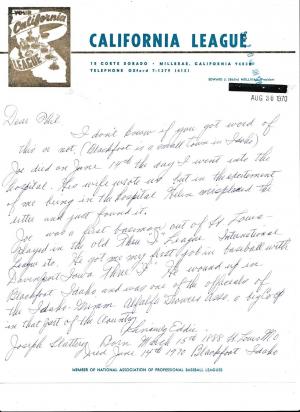 YOUR
California
LEAGUE
CALIFORNIA LEAGUE
18 CORTE DORADO - MILLBRAE, CALIFORNIA 94030
TELEPHONE OXford 7-1379 (415)
EDWARD J. (Eddie) MULLIGAN, President
AUG 30 1970
Dear Phil
I don't know if you got word of
this or not (Blackfoot is a small town in Idaho)
Joe died on June 14th the day I went into the
Hospital. His wife wrote us, but in the excitement
of me being in the hospital Helen misplaced the
letter and just found it.
Joe was a first baseman out of St Louis-
played in the old Three I League International
League etc. He got me my first job in baseball with
Davenport Iowa Three "I". He wound up in
Blackfoot Idaho and was one of the officials of
the Idaho- Alfalfa Growers Assn a big Co-op
in that part of the Country.
Sincerely Eddie.
Joseph Slattery Born March 15th 1888 St Louis Mo
Died June 14th 1970 Blackfoot Idaho
MEMBER OF NATIONAL ASSOCIATION OF PROFESSIONAL BASEBALL LEAGUES